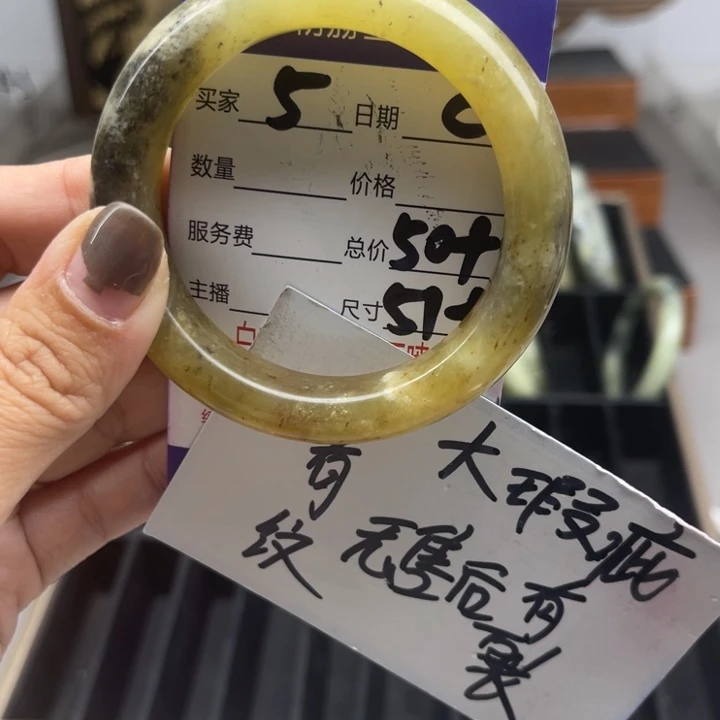 买家 5 日期 0
数量 价格
服务费 总价 50+
主播 尺寸 51+
大瑕疵
有纹
无售后有
裂